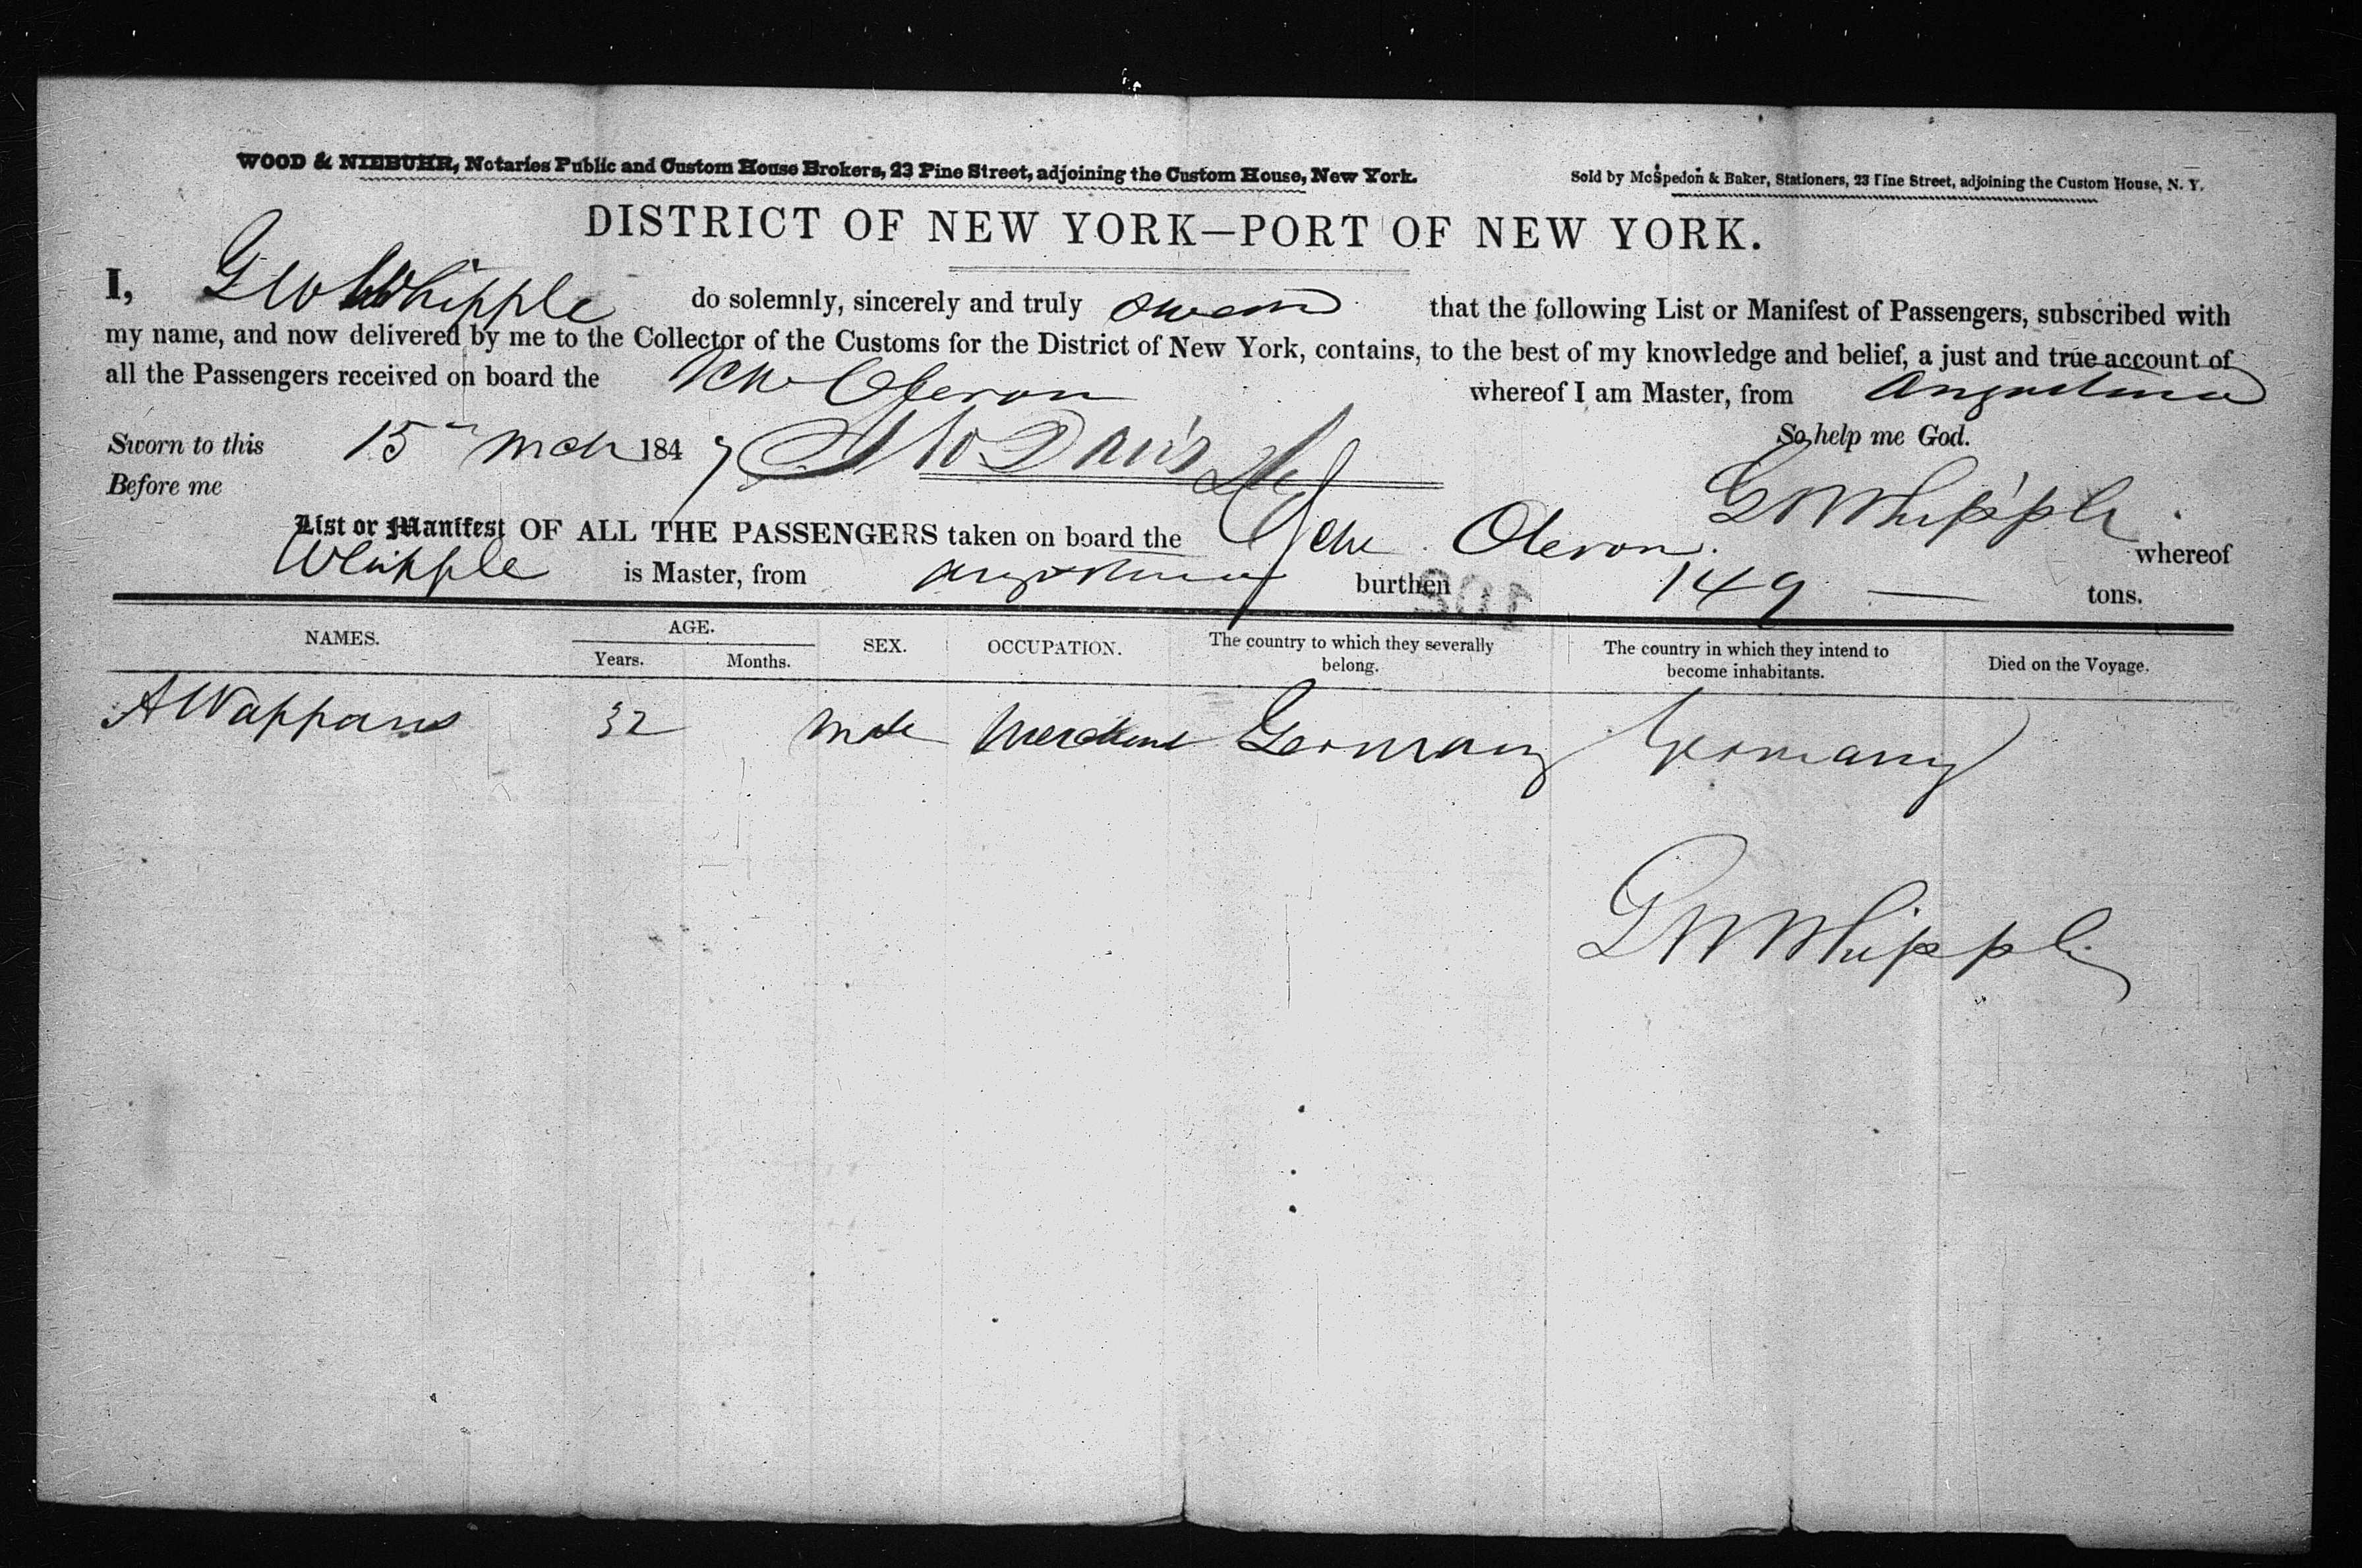 WOOD & NIEBUHR, Notaries Public and Custom House Brokers, 23 Pine Street, adjoining the Custom House, New York.
Sold by McSpedon & Baker, Stationers, 23 Pine Street, adjoining the Custom House, N. Y.
DISTRICT OF NEW YORK—PORT OF NEW YORK.
I, G W Whipple do solemnly, sincerely and truly swear that the following List or Manifest of Passengers, subscribed with
my name, and now delivered by me to the Collector of the Customs for the District of New York, contains, to the best of my knowledge and belief, a just and true account of
all the Passengers received on board the Sch Oberon whereof I am Master, from Angustura
So help me God.
Sworn to this 15 Mch 1847
Before me Davis
G W Whipple
List or Manifest OF ALL THE PASSENGERS taken on board the Sch Oberon whereof
Whipple is Master, from Angostura burthen 149 tons.
NAMES. AGE. SEX. OCCUPATION. The country to which they severally belong. The country in which they intend to become inhabitants. Died on the Voyage.
Years. Months.
A Wappans 32 Male Merchant Germany Germany
G W Whipple